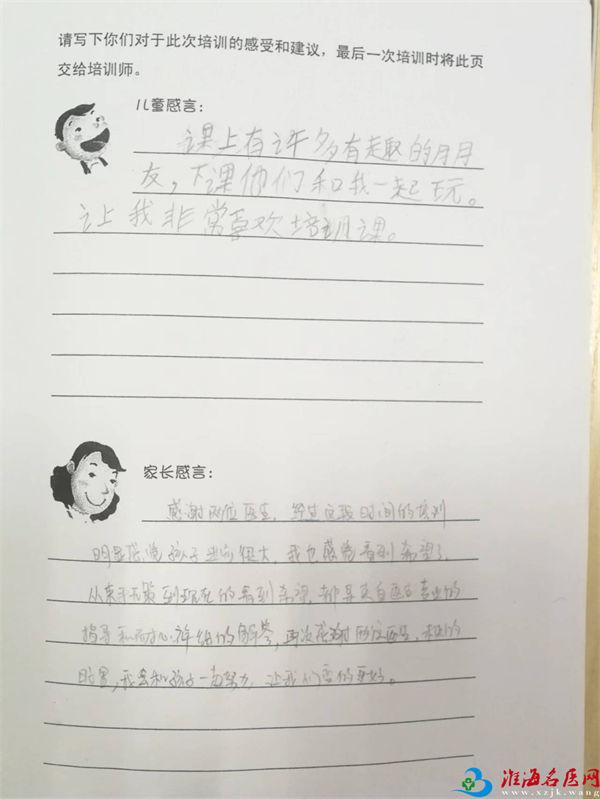 请写下你们对于此次培训的感受和建议，最后一次培训时将此页
交给培训师。
儿童感言：
课上有许多有趣的朋
友，下课他们和我一起玩。
让我非常喜欢培训课。
家长感言：
感谢两位医生，经过这段时间的培训
明显感觉孩子进步很大，我也感觉看到希望了
从束手无策到现在的看到希望，都是来自医生专业的
指导和耐心详细的解答，再次感谢两位医生，
我会和孩子一起努力，让我们变的更好。
淮海名医网
www.xzjk.wang